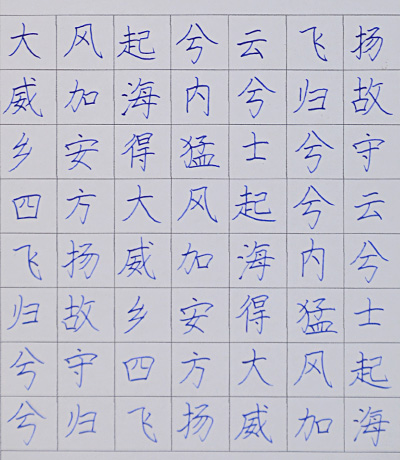 大风起兮云飞扬
威加海内兮归故
乡安得猛士兮守
四方大风起兮云
飞扬威加海内兮
归故乡安得猛士
兮守四方大风起
兮归飞扬威加海